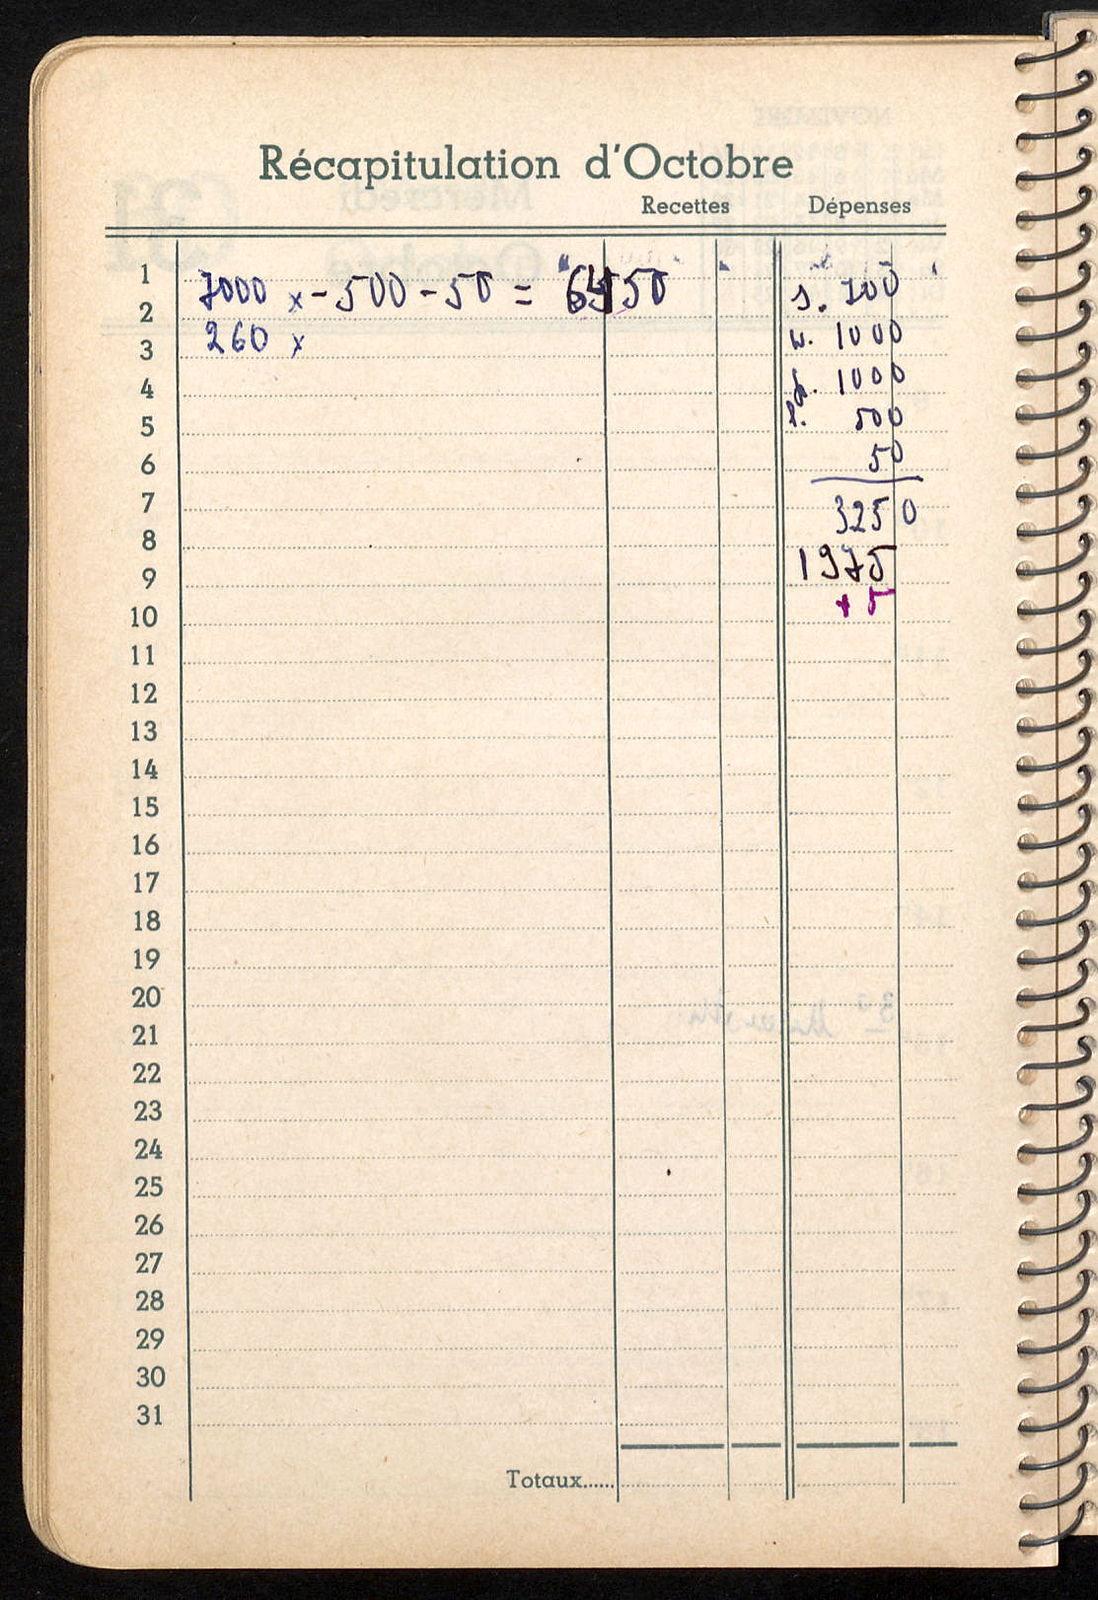 Récapitulation d'Octobre
Recettes Dépenses
1
7000 x - 500 - 50 = 6450 s. 700
2
260 x w. 1000
3
4 1000
5 500
6 50
7 3250
8
9 1975
10 + 5
11
12
13
14
15
16
17
18
19
20
21
22
23
24
25
26
27
28
29
30
31
Totaux......